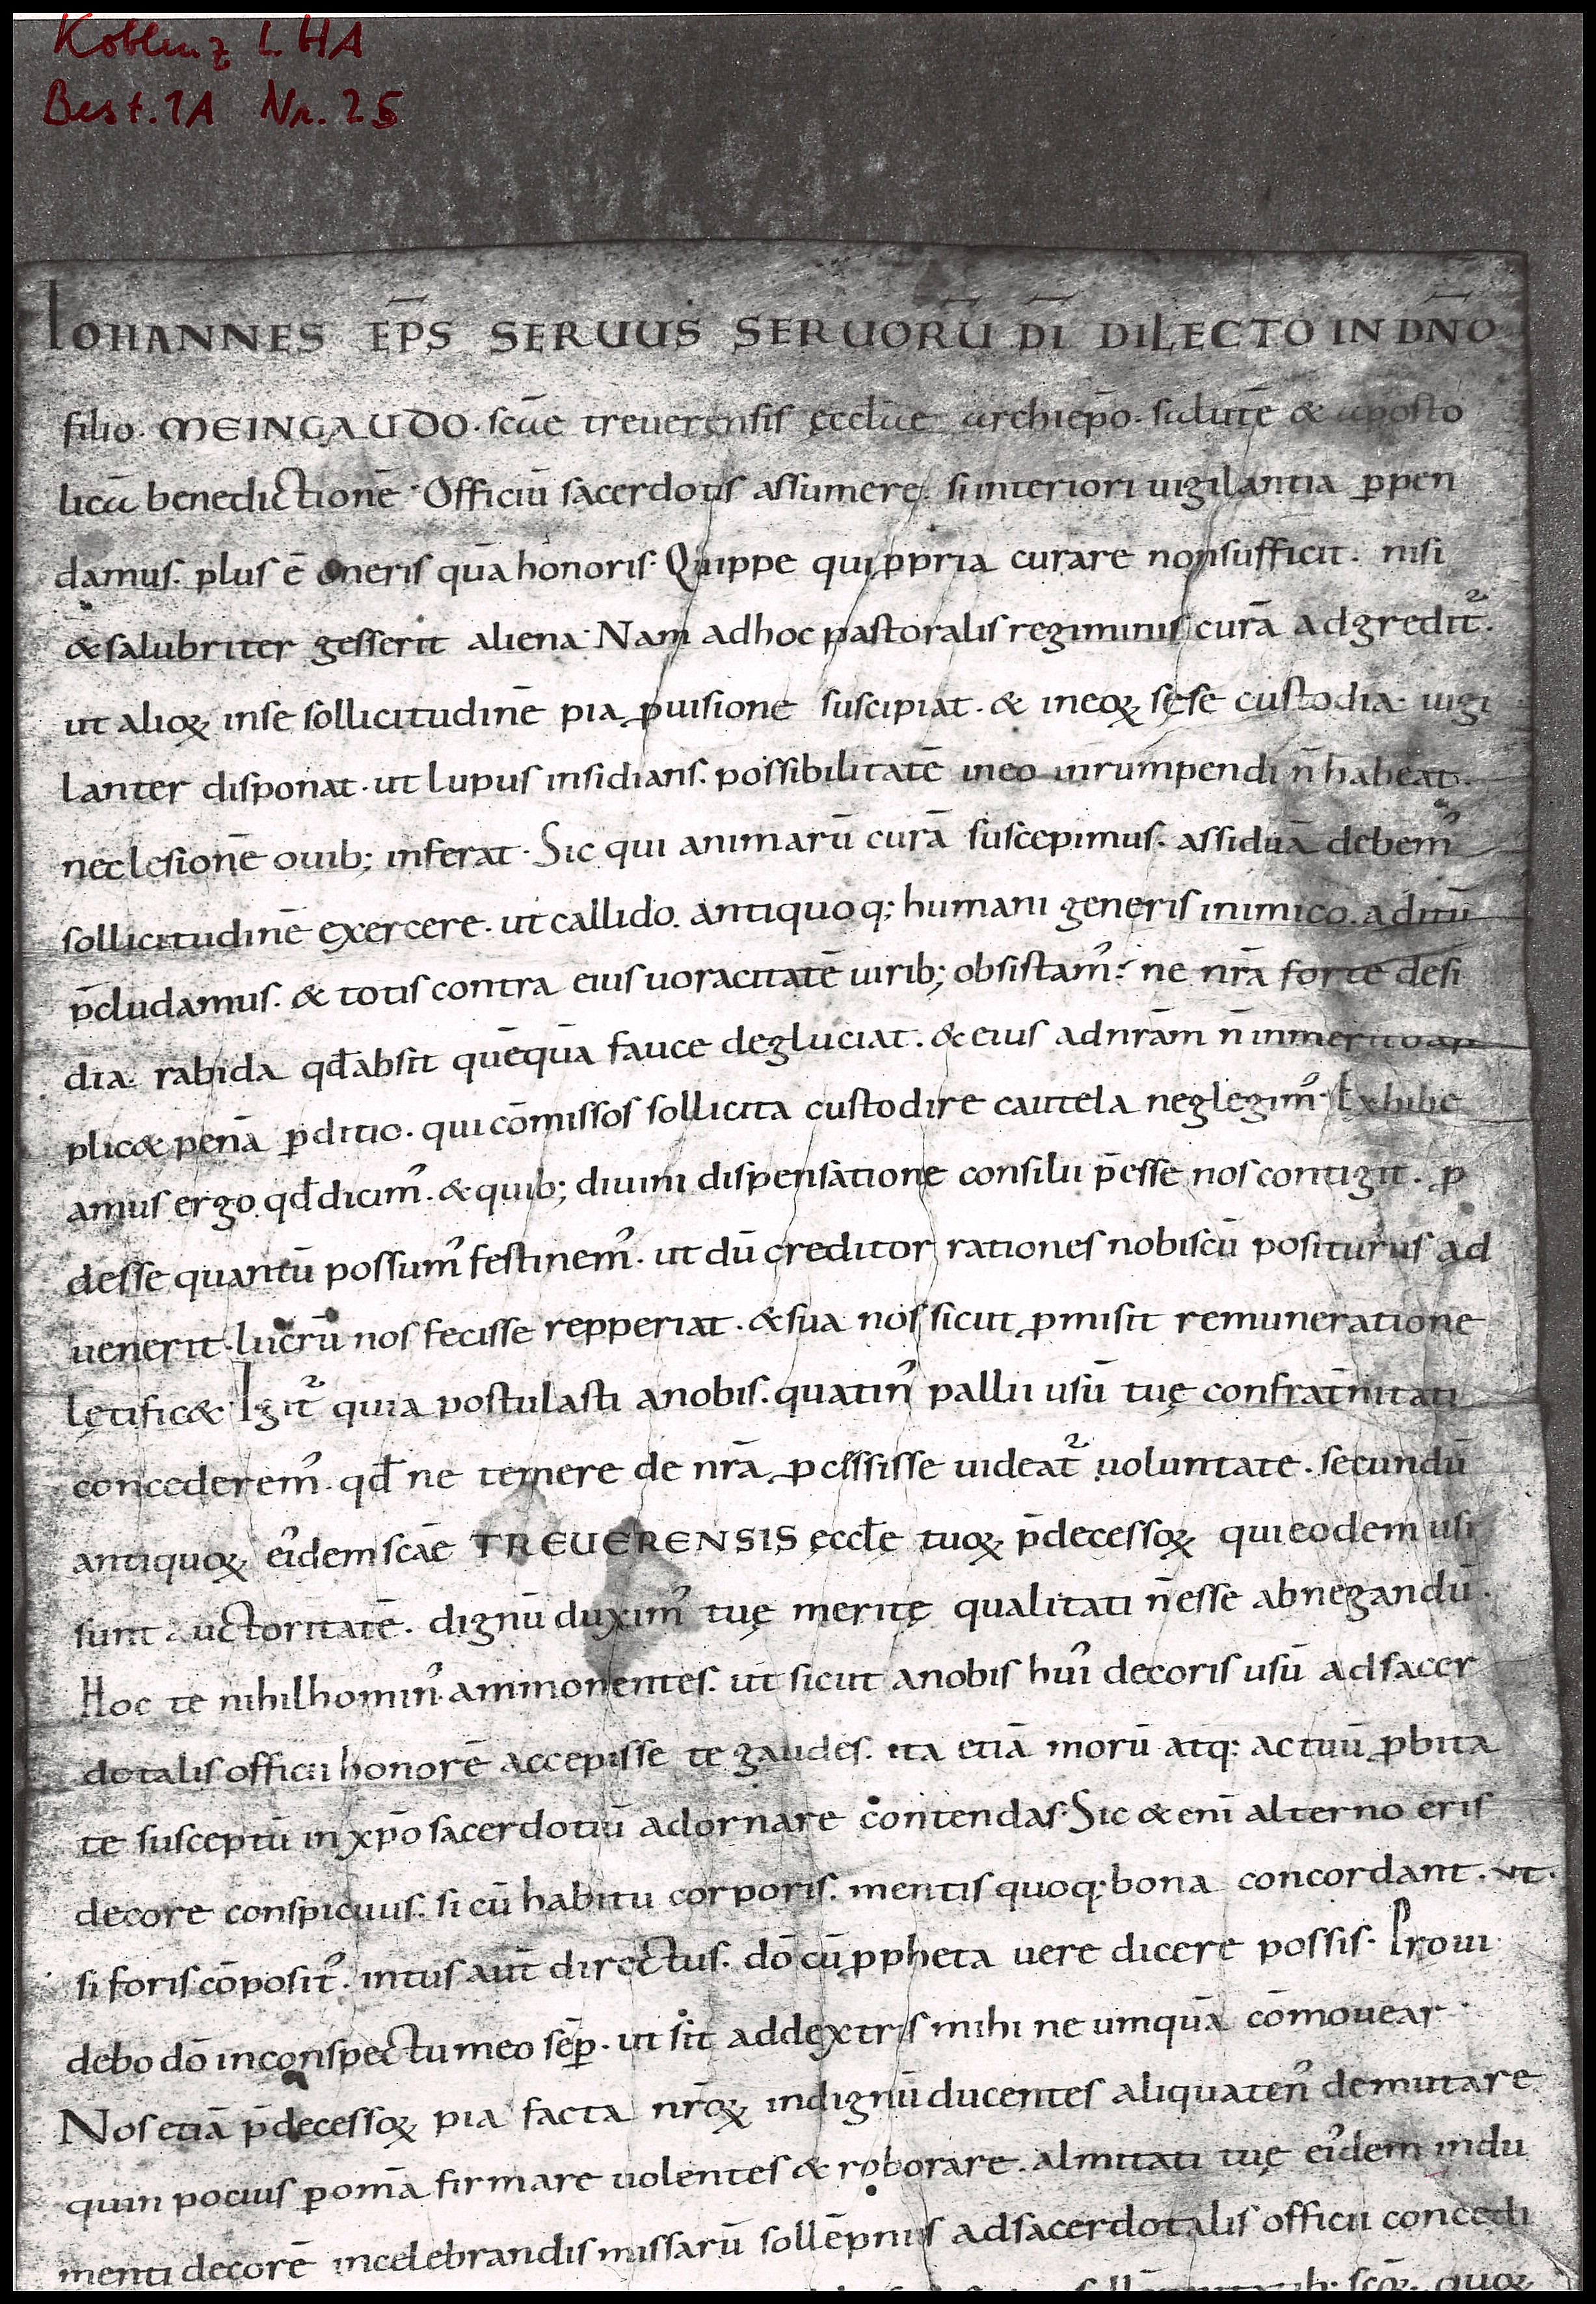 Koblenz LHA
Best. 1A Nr. 25
IOHANNES EP̄S SERUUS SERUORŪ DĪ DILECTO IN DN̄O
filio. MEINGAUDO. scāe treuerensis ęcclāe archiep̄o. salutē & aposto
licā benedictionē. Officiū sacerdotis assumere. si interiori uigilantia ꝑpen
damus. plus ē oneris quā honoris. Quippe qui ꝓpria curare non sufficit. nisi
& salubriter gesserit aliena. Nam ad hoc pastoralis regiminis curā adgredit᷑.
ut alioꝝ in se sollicitudinē pia ꝓuisione suscipiat. & in eoꝝ sese custodia uigi
lanter disponat. ut lupus insidians. possibilitatē in eo inrumpendi n̄ habeat.
nec lesionē ouib; inferat. Sic qui animarū curā suscepimus. assiduā debemꝰ
sollicitudinē exercere. ut callido. antiquoq; humani generis inimico. aditū
p̄cludamus. & totis contra eius uoracitatē uirib; obsistamꝰ. ne nr̄a forte desi
dia. rabida qđ absit quēquā fauce degluciat. & eius ad nrām n̄ inmerito ap
plic& penā ꝑditio. qui cōmissos sollicita custodire cautela neglegimꝰ. Exhibe
amus ergo qđ dicimꝰ. & quib; diuini dispensatione consilii p̄esse nos contigit. ꝓ
desse quantū possumꝰ festinemꝰ. ut dū creditor rationes nobiscū positurus ad
uenerit. lucrū nos fecisse repperiat. & sua nos sicut ꝓmisit remuneratione
lętific&. Igit᷑ quia postulasti a nobis. quatinꝰ pallii usū tuę confrat̄nitati
concederemꝰ. qđ ne temere de nr̄a ꝓcessisse uideat᷑ uoluntate. secundū
antiquoꝝ eiꝰdem scāe TREUERENSIS ęccłe tuoꝝ p̄decessoꝝ qui eodem usi
sunt auctoritatē. dignū duximꝰ tuę meritę qualitati n̄ esse abnegandū.
Hoc te nihilhominꝰ ammonentes. ut sicut a nobis huiꝰ decoris usū ad sacer
dotalis officii honorē accepisse te gaudes. ita etiā morū atq; actuū ꝓbita
te susceptū in xp̄o sacerdotiū adornare contendas. Sic & enī alterno eris
decore conspicuus. si cū habitu corporis. mentis quoq; bona concordant. ut.
si foris cōpositꝰ. intus aut̄ directus. dō cū ꝓpheta uere dicere possis. Proui
debo dō in conspectu meo sēꝑ. ut sit ad dextris mihi ne umquā cōmouear.
Nos etiā p̄decessoꝝ pia facta nr̄oꝝ indignū ducentes aliquatenꝰ demutare
quin pocius ꝑ om̄a firmare uolentes & roborare. almitati tuę eiꝰdem indu
menti decorē in celebrandis missarū sollēpniis ad sacerdotalis officii concedi